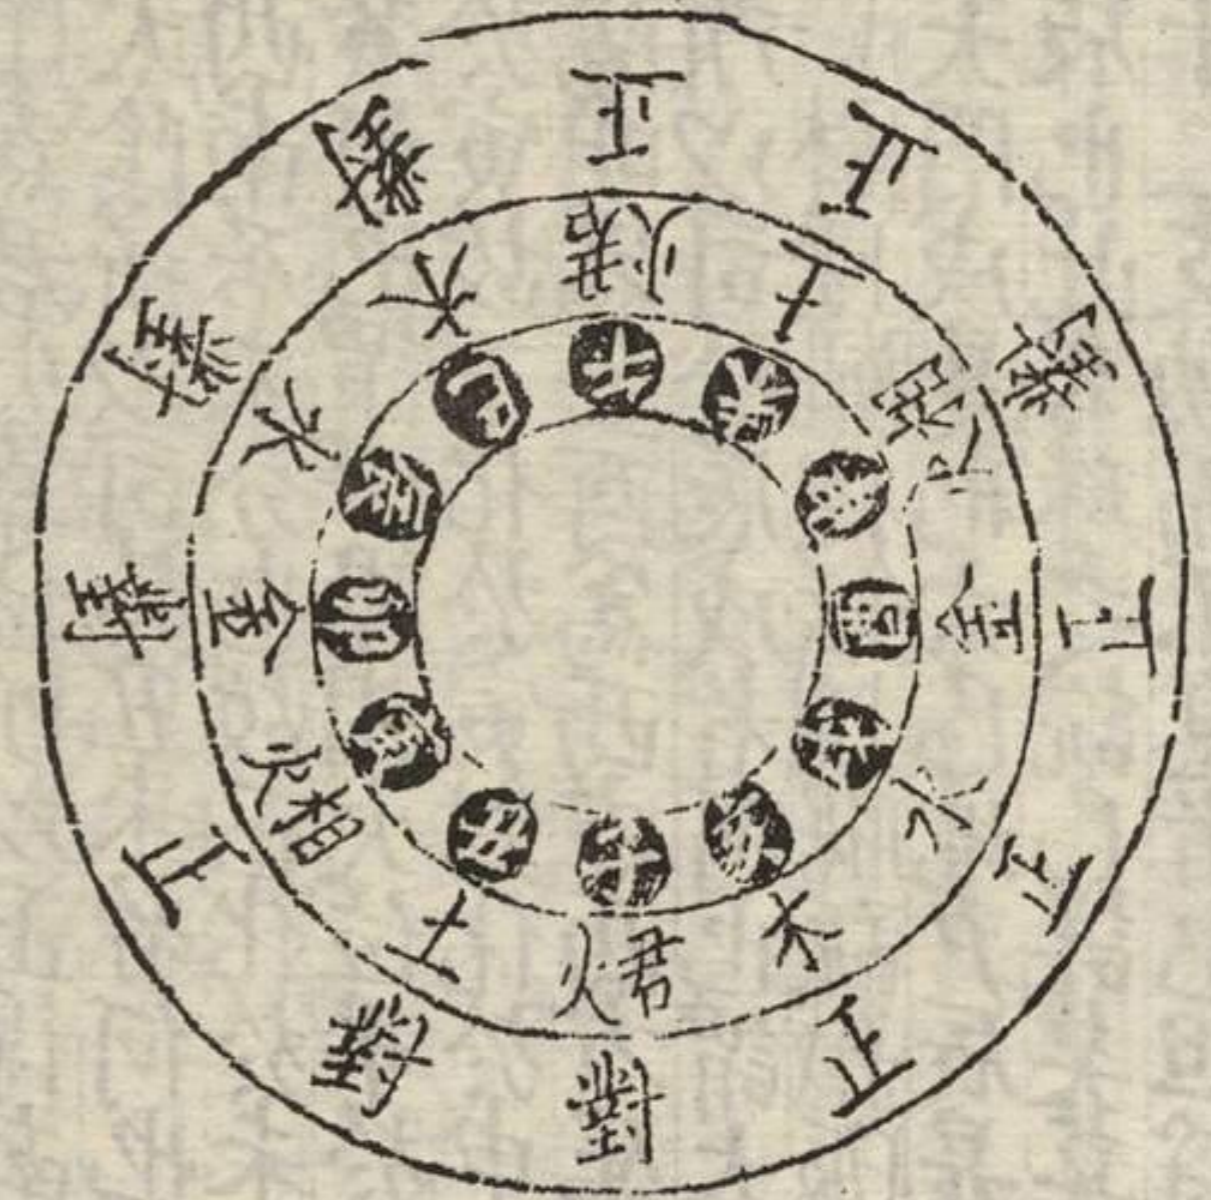 正
正
對
正
正
正
對
對
正
對
對
對
君火
土
相火
金
水
木
君火
土
相火
金
水
木
午
未
申
酉
戌
亥
子
丑
寅
卯
辰
巳